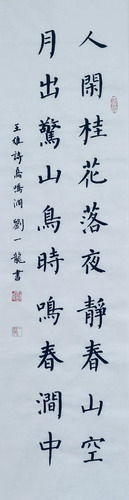 人閑桂花落夜靜春山空
月出驚山鳥時鳴春澗中
王維詩鳥鳴澗 劉一龍書